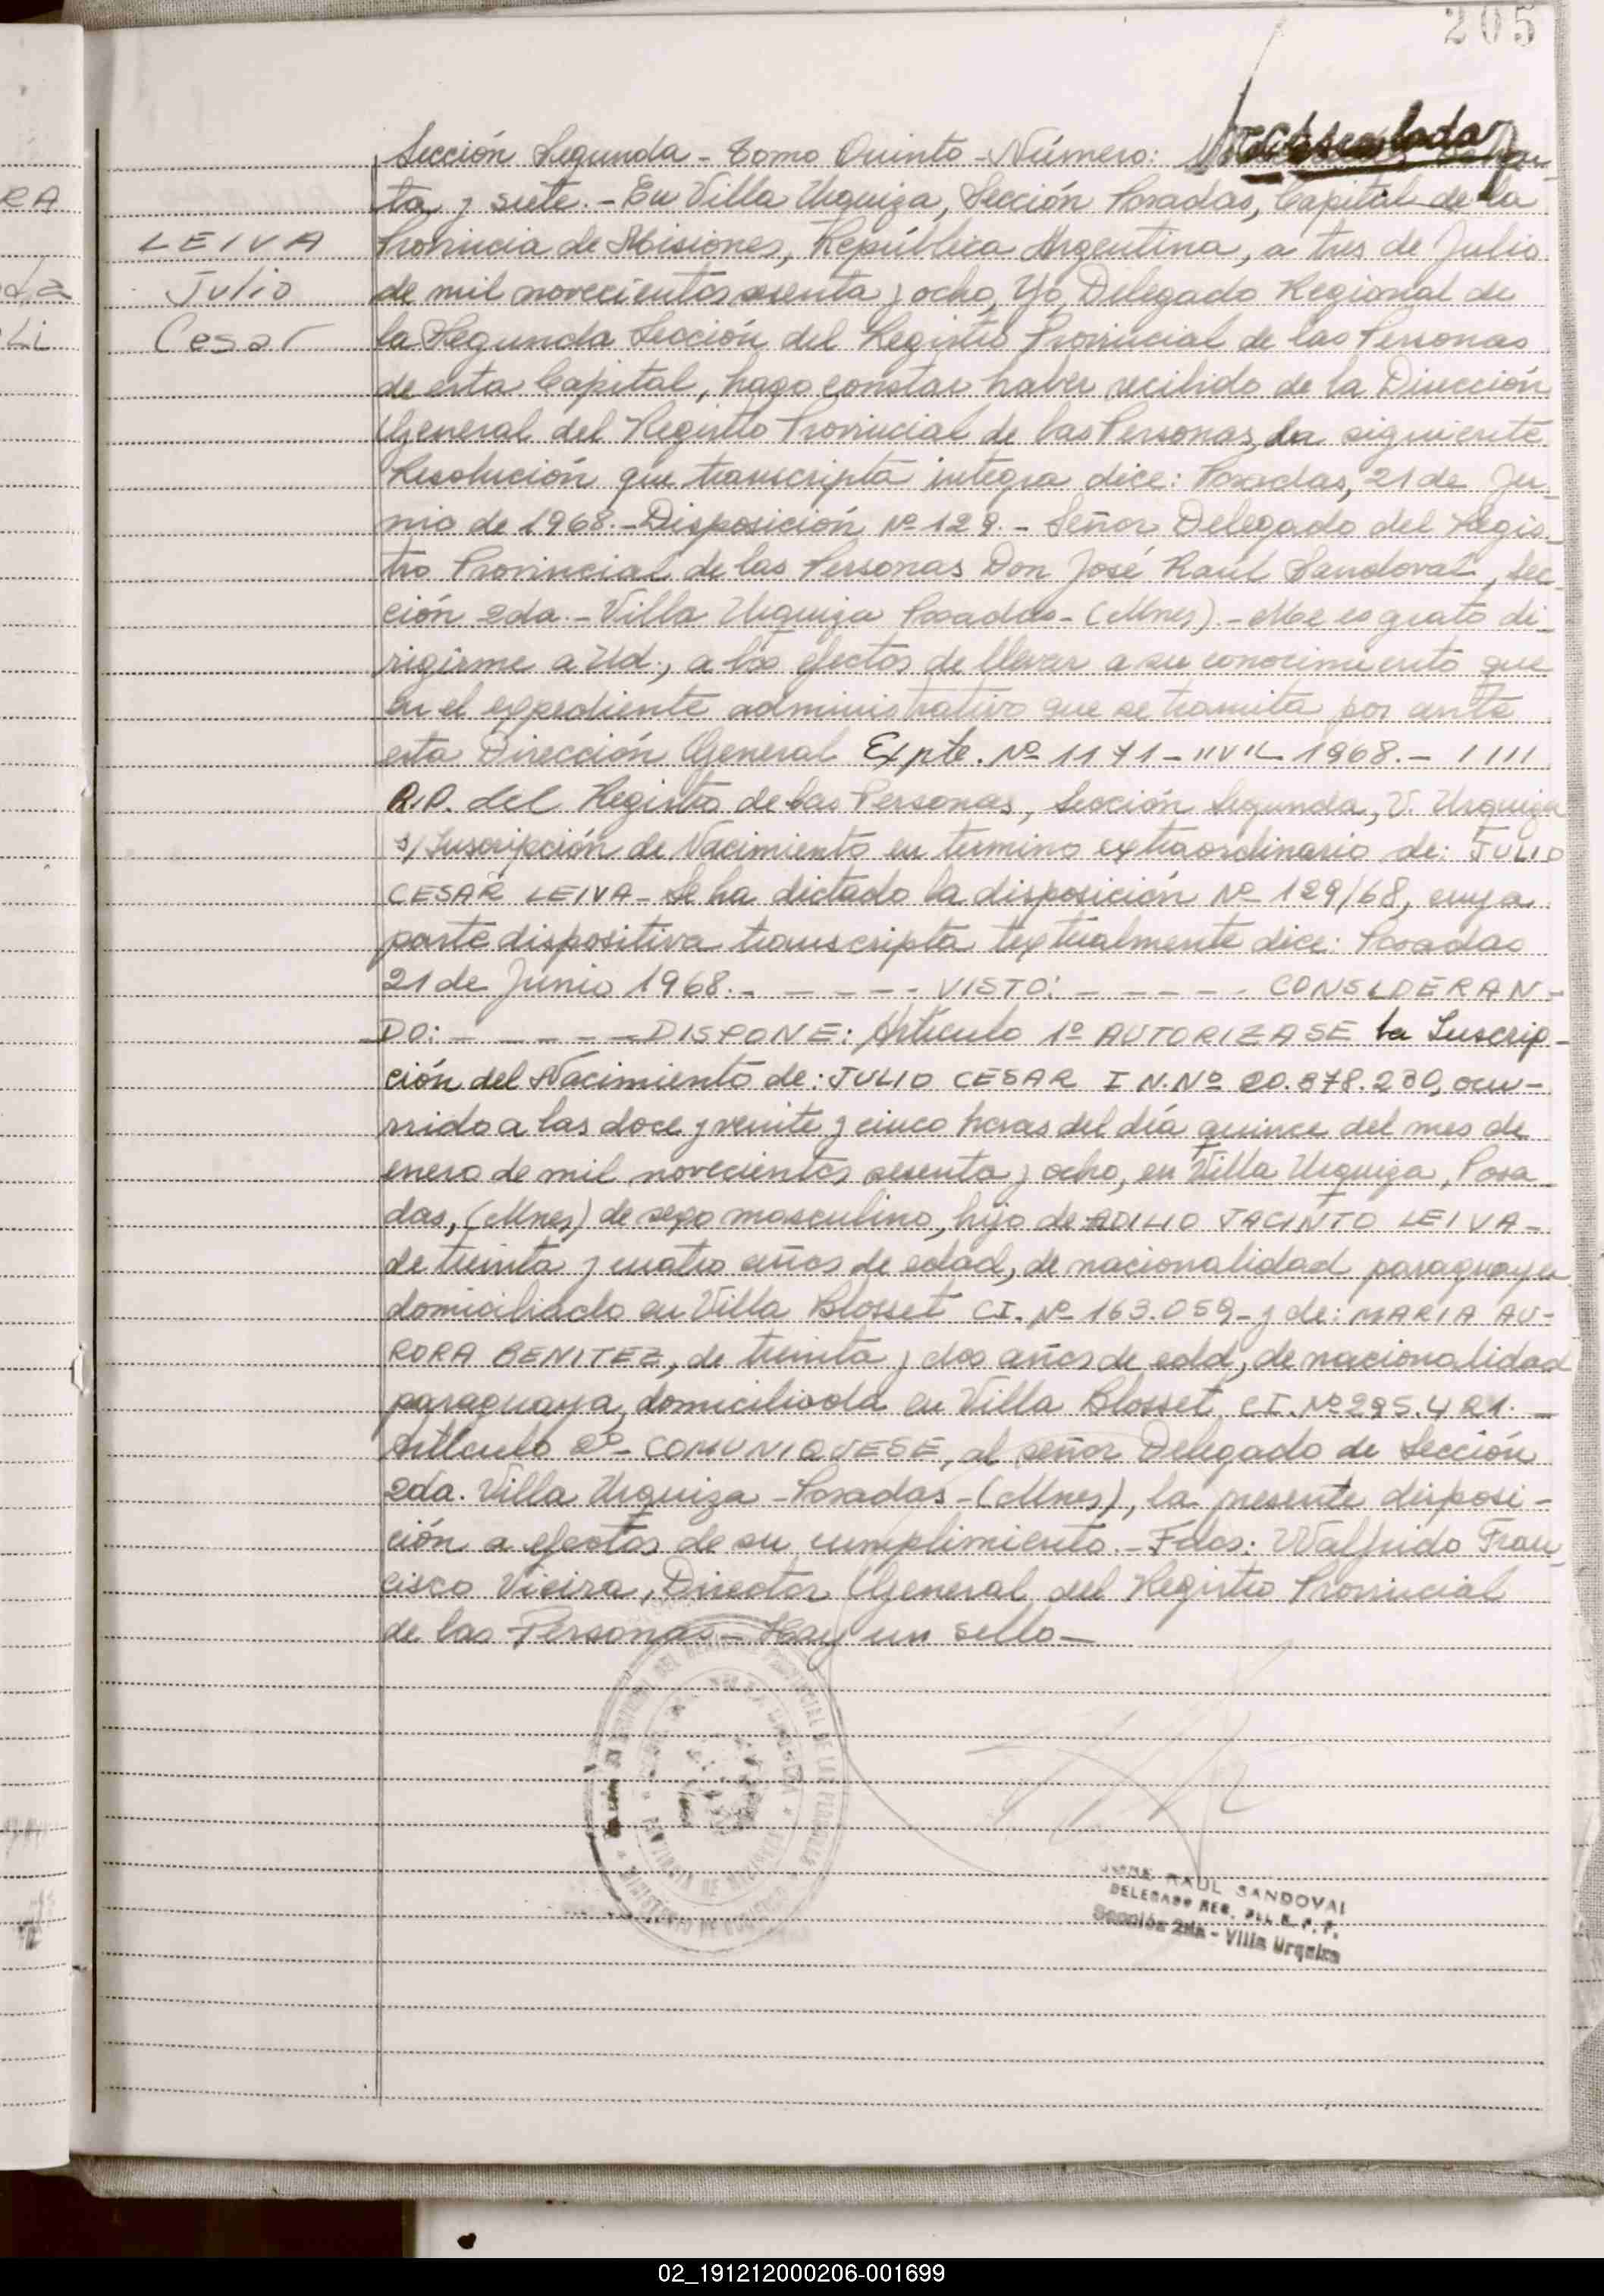 205
Sección Segunda - Tomo Quinto - Número:
ta y siete. - En Villa Urquiza, Sección Posadas, Capital de la
RA
LEIVA
Provincia de Misiones, República Argentina, a tres de Julio
da
Julio
de mil novecientos sesenta y ocho, Yo, Delegado Regional de
Li
Cesar
la Segunda Sección del Registro Provincial de las Personas
de esta Capital, hago constar haber recibido de la Dirección
General del Registro Provincial de las Personas, la siguiente
Resolución que transcripta integra dice: Posadas, 21 de Ju-
nio de 1968. - Disposición Nº 129. - Señor Delegado del Regis-
tro Provincial de las Personas Don José Raúl Sandoval, Sec-
ción 2da. - Villa Urquiza Posadas - (Mnes). - Me es grato di-
rigirme a Ud., a los efectos de llevar a su conocimiento que
en el expediente administrativo que se tramita por ante
esta Dirección General Expte. Nº 1171 - "V" - 1968. - / / / /
R.P. del Registro de las Personas, Sección Segunda, V. Urquiza
s/ Inscripción de Nacimiento en termino extraordinario de: JULIO
CESAR LEIVA - Se ha dictado la disposición Nº 129/68, cuya
parte dispositiva transcripta textualmente dice: Posadas
21 de Junio 1968. - - - - - VISTO: - - - - - CONSIDERAN-
DO: - - - - - DISPONE: Artículo 1º AUTORIZASE la Inscrip-
ción del Nacimiento de: JULIO CESAR I N. Nº 20.878.230, ocu-
rrido a las doce y veinte y cinco horas del día quince del mes de
enero de mil novecientos sesenta y ocho, en Villa Urquiza, Posa-
das, (Mnes) de sexo masculino, hijo de ADILIO JACINTO LEIVA -
de treinta y cuatro años de edad, de nacionalidad paraguaya
domiciliado en Villa Blosset CI. Nº 163.059 - y de: MARIA AU-
RORA BENITEZ, de treinta y dos años de edd, de nacionalidad
paraguaya, domiciliada en Villa Blosset CI. Nº 295.421. -
Artículo 2º - COMUNIQUESE, al señor Delegado de Sección
2da. Villa Urquiza - Posadas - (Mnes), la presente disposi-
ción a efectos de su cumplimiento. - Fdos: Walfrido Fran-
cisco Vieira, Director General del Registro Provincial
de las Personas - Hay un sello -
RAUL SANDOVAL
DELEGADO REG. DEL R. P. P.
Sección 2da - Villa Urquiza
02_191212000206-001699